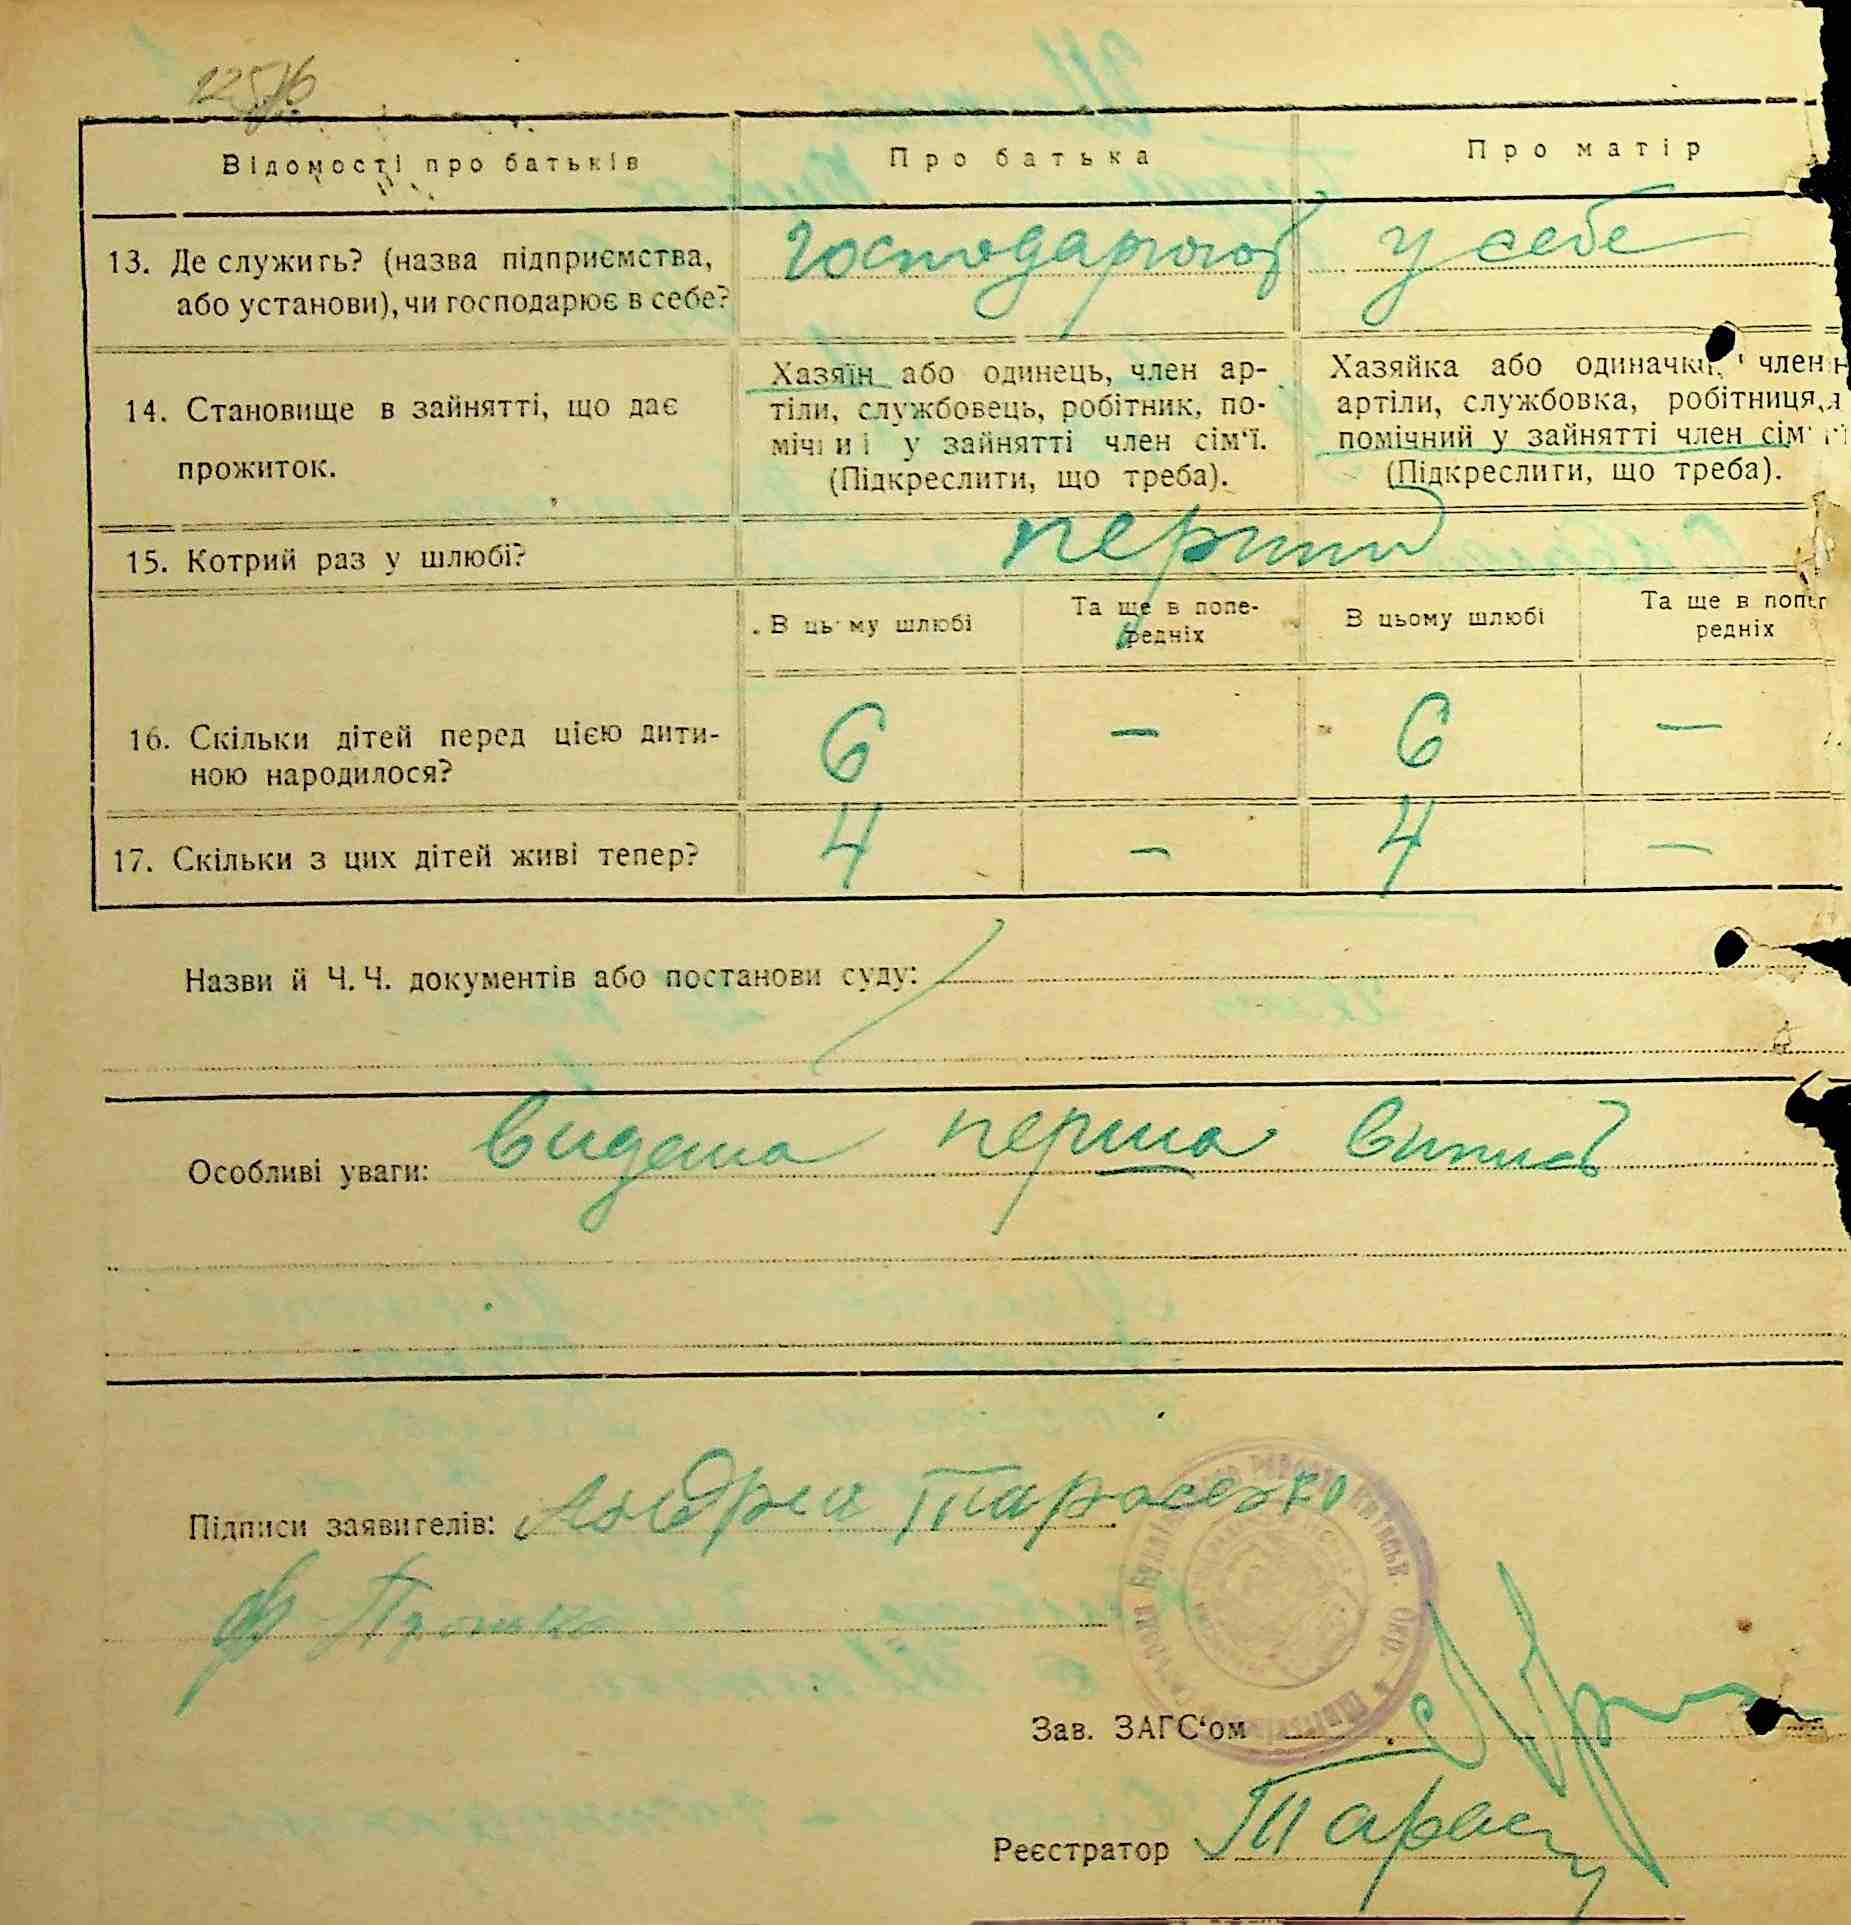 Відомості про батьків
Про батька
Про матір
13. Де служить? (назва підприємства,
або установи), чи господарює в себе?
господарюють у себе
14. Становище в зайнятті, що дає
прожиток.
Хазяїн або одинець, член ар-
тіли, службовець, робітник, по-
мічний у зайнятті член сім'ї.
(Підкреслити, що треба).
Хазяйка або одиначка, член
артіли, службовка, робітниця,
помічний у зайнятті член сім'ї
(Підкреслити, що треба).
15. Котрий раз у шлюбі?
перший
В цьому шлюбі
Та ще в попе-
редніх
В цьому шлюбі
Та ще в попе-
редніх
16. Скільки дітей перед цією дити-
ною народилося?
6 — 6 —
17. Скільки з цих дітей живі тепер?
4 — 4 —
Назви й Ч. Ч. документів або постанови суду:
Особливі уваги: видана перша випись
Підписи заявителів: Андрей Тарасенко
Зав. ЗАГС'ом
Реєстратор